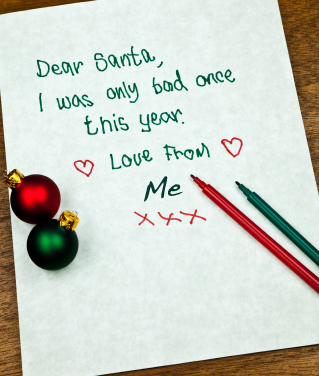 Dear Santa,
I was only bad once
this year.
Love From
Me
xxx